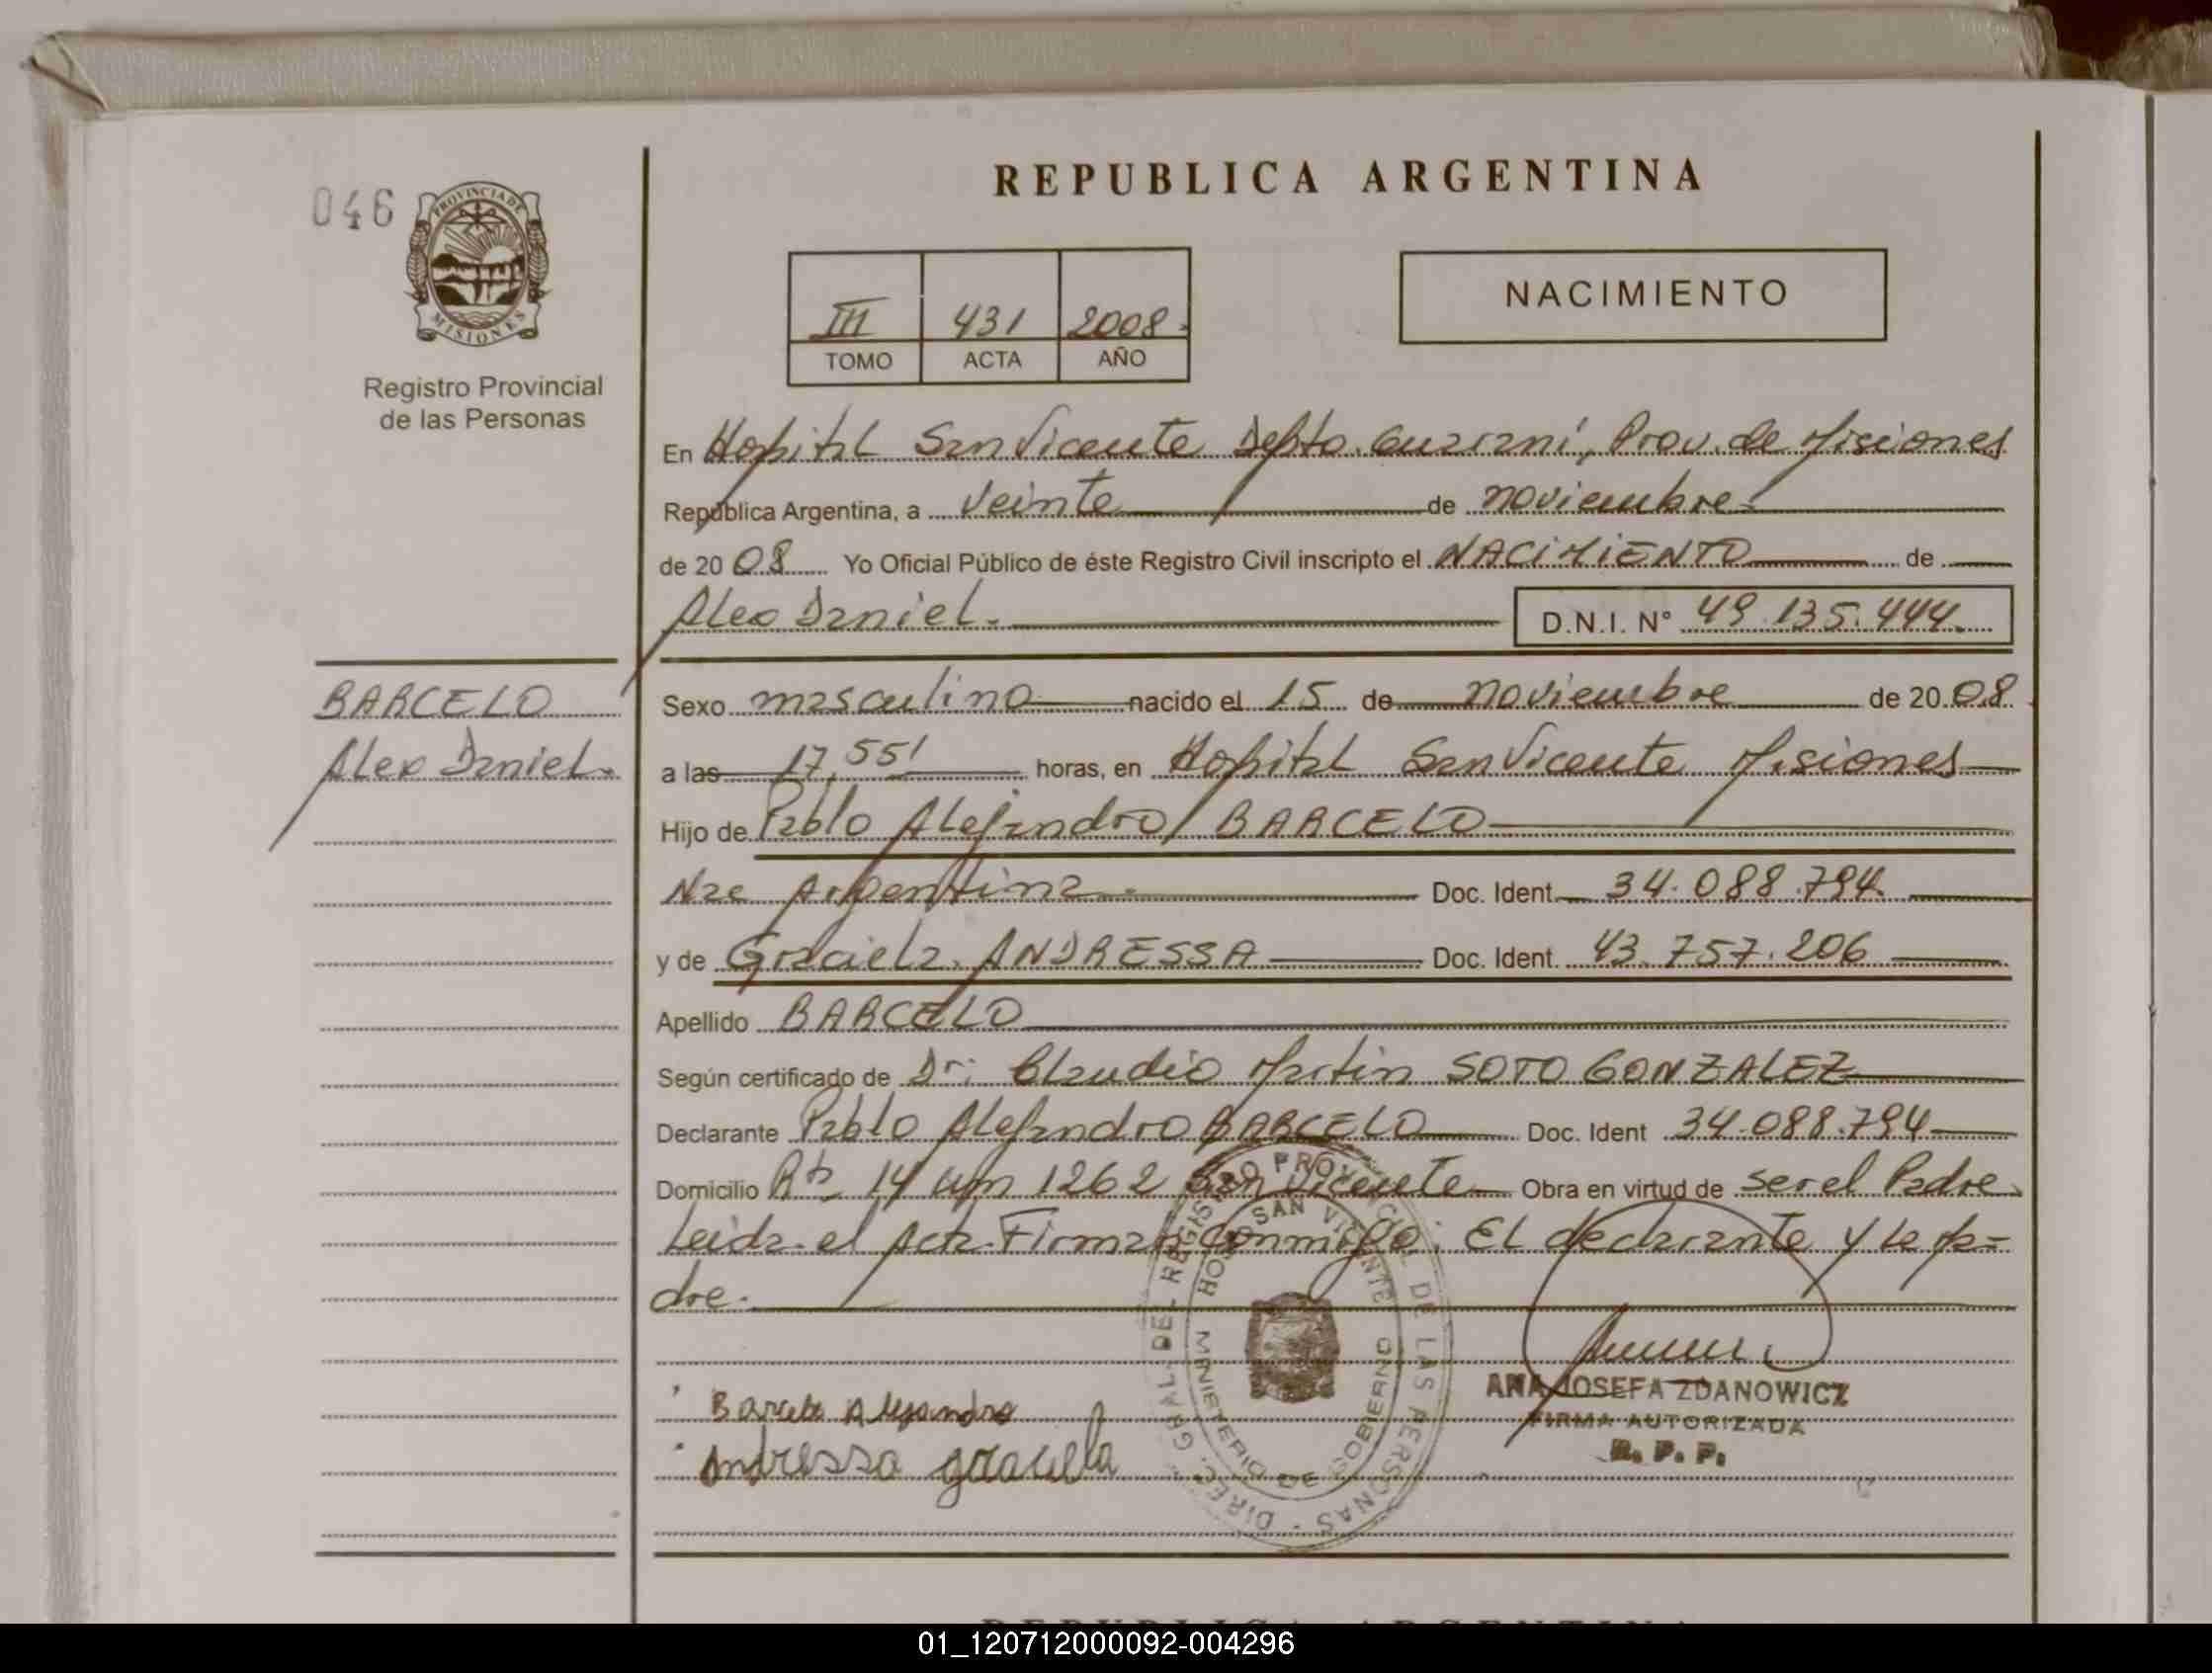 REPUBLICA ARGENTINA
046
PROVINCIA DE
MISIONES
Registro Provincial
de las Personas
III 431 2008.
TOMO ACTA AÑO
NACIMIENTO
En Hospital San Vicente Depto. Guaraní, Prov. de Misiones
República Argentina, a veinte de noviembre
de 20 08 Yo Oficial Público de éste Registro Civil inscripto el NACIMIENTO de
Alex Daniel.
D.N.I. Nº 49.135.444.
BARCELO
Alex Daniel.
Sexo masculino nacido el 15 de noviembre de 20 08.
a las 17,55' horas, en Hospital San Vicente Misiones
Hijo de Pablo Alejandro BARCELO
Nac Argentina. Doc. Ident. 34.088.794.
y de Graciela ANDRESSA Doc. Ident. 43.757.206
Apellido BARCELO
Según certificado de Dr: Claudio Martin SOTO GONZALEZ
Declarante Pablo Alejandro BARCELO Doc. Ident 34.088.794
Domicilio 14 km 1262 San Vicente Obra en virtud de ser el Padre
Leida el Acta Firman conmigo: El declarante y la ma=
dre.
DIREC. GRAL. DEL REGISTRO PROVINCIAL DE LAS PERSONAS
HOSP. SAN VICENTE
MINISTERIO DE GOBIERNO
ANA JOSEFA ZDANOWICZ
FIRMA AUTORIZADA
R. P. P.
Barcelo Alejandro
Andressa graciela
REPUBLICA ARGENTINA
01_120712000092-004296